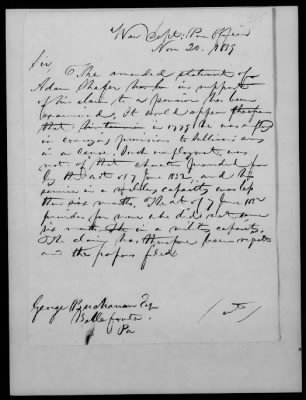 War Dept; Pen Office
Nov 20, 1849
Sir
The amended statement of
Adam Shafer in support
of his claim to a pension has been
examined, It would appear
that in 1778 he was
in conveying provisions to
in a canoe. Such employment, was
not of that character provided for
by the act of 7 June 1832, and his
service in a military capacity was less
than six months. The act of 7 June 1832
provides for none who did not serve
six months in a military capacity.
The claim has therefore been rejected
and the papers filed
George Buchanan Esq
Bellefonte
Pa